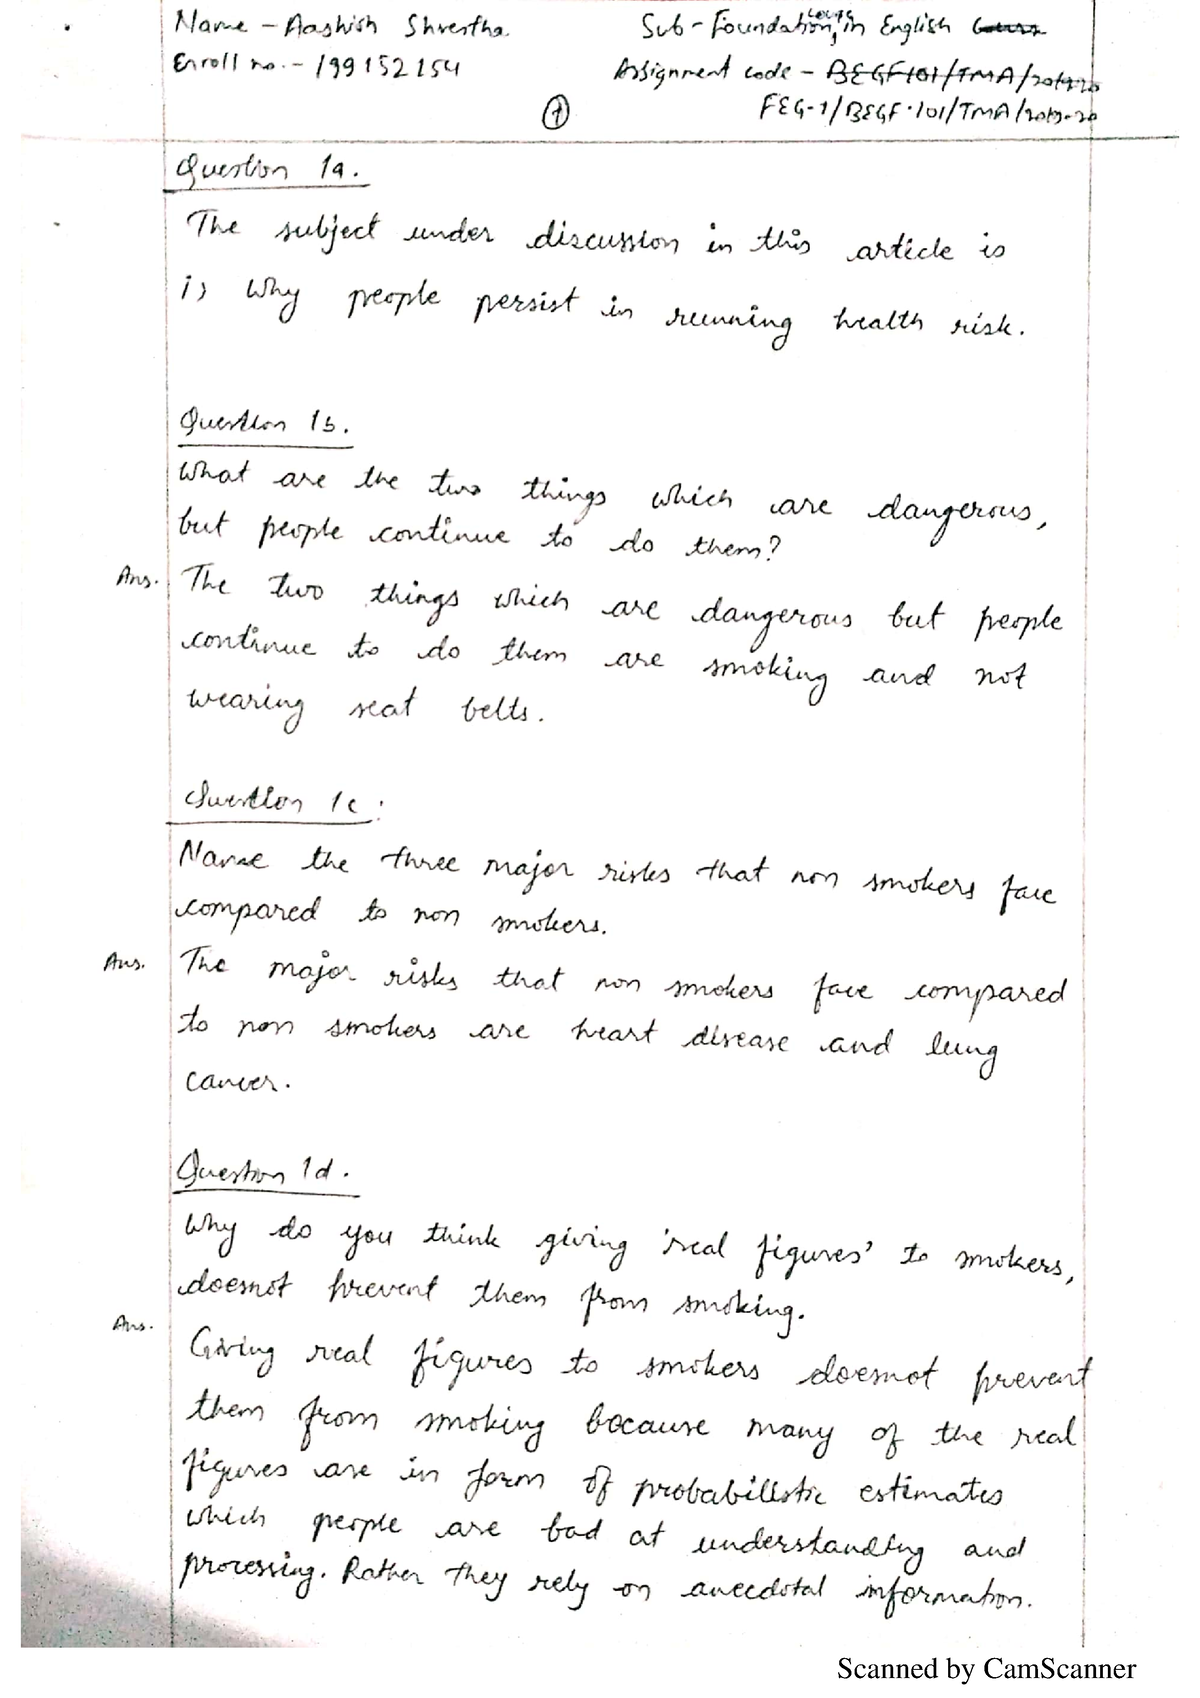 Name - Aashish Shrestha
Sub - Foundation Course in English
Enroll no. - 199152154
Assignment code - BEGF101/TMA/2019-20
FEG-1/BEGF-101/TMA/2019-20
1
Question 1a.
The subject under discussion in this article is
is why people persist in running health risk.
Question 1b.
What are the two things which are dangerous,
but people continue to do them?
Ans. The two things which are dangerous but people
continue to do them are smoking and not
wearing seat belts.
Question 1c:
Name the three major risks that non smokers face
compared to non smokers.
Ans. The major risks that non smokers face compared
to non smokers are heart disease and lung
cancer.
Question 1d.
Why do you think giving 'real figures' to smokers,
doesnot prevent them from smoking.
Ans.
Giving real figures to smokers doesnot prevent
them from smoking because many of the real
figures are in form of probabilistic estimates
which people are bad at understanding and
processing. Rather they rely on anecdotal information.
Scanned by CamScanner